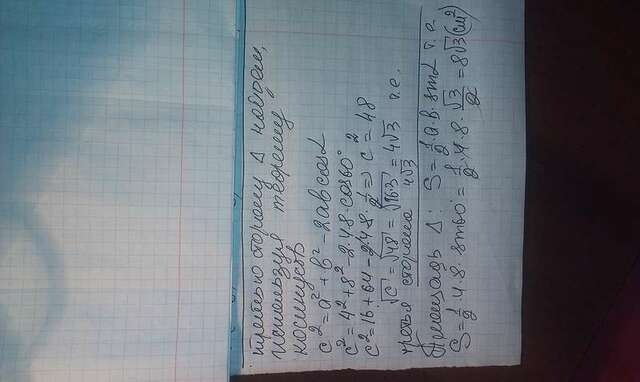 третью сторону Δ находим,
используя теорему
косинусов
c² = a² + b² - 2ab cosα
c² = 4² + 8² - 2·4·8 cos60°
c² = 16 + 64 - 2·4·8 · 1/2 => c² = 48
√c = √48 = √16·3 = 4√3 т.е.
третья сторона 4√3
Площадь Δ: S = 1/2 a·b·sinα т.е.
S = 1/2 · 4·8 · sin60° = 1/2 · 4·8 · √3/2 = 8√3 (см²)